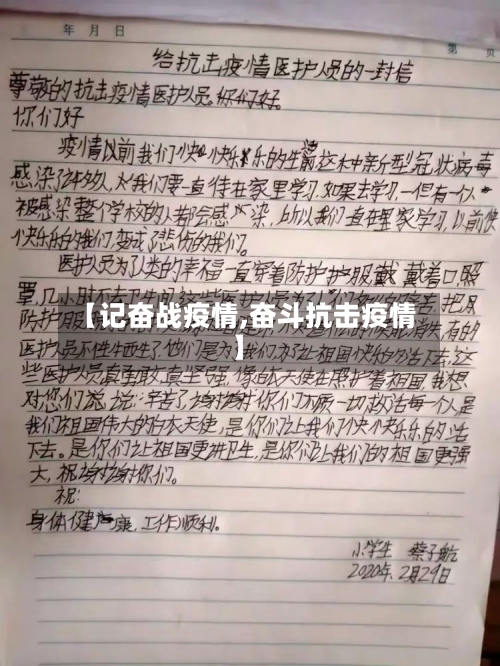 年 月 日
第 页
给抗击疫情医护人员的一封信
尊敬的抗击疫情医护人员。你们好。
你们好
疫情以前我们快快乐乐的生活 这种新型冠状病毒
感染许多人 我们要一直待在家里学习 如果去学习 一但有一个人
被感染 整个学校的人都会感染 所以我们一直在里家学习 以前快
快乐乐的我们 变成了悲伤的我们。
医护人员为了人类的幸福一直穿着防护服 戴着口照
罩 几小时
防护服
【记奋战疫情,奋斗抗击疫情
】
医护人员不性牺牲了 他们是为我们 祖国快 活下去 这
些医护人员真勇敢 真坚强 像白衣天使在照护着祖国 我想
对您们说 说: 辛苦了 谢谢 你们不顾一切救治每个人是
我们祖国伟大的白衣天使, 是你们让我们快快乐乐的活
下去。是你们让祖国更讲卫生, 是你们让我们的祖国更强
大, 祝 谢谢你们。
祝:
身体健康, 工作顺利。
小学生 蔡子航
2020年 2月29日